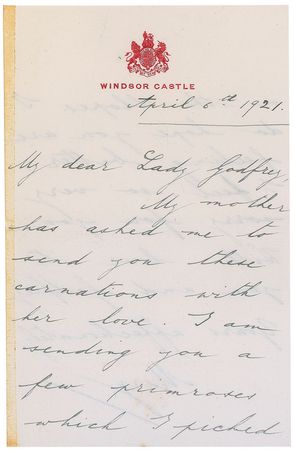 WINDSOR CASTLE
April 6th 1921.
My dear Lady Godfrey,
My mother
has asked me to
send you these
carnations with
her love. I am
sending you a
few primroses
which I picked